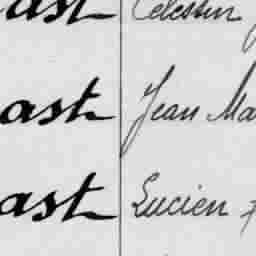 ast Célestin
ast Jean Ma
ast Lucien